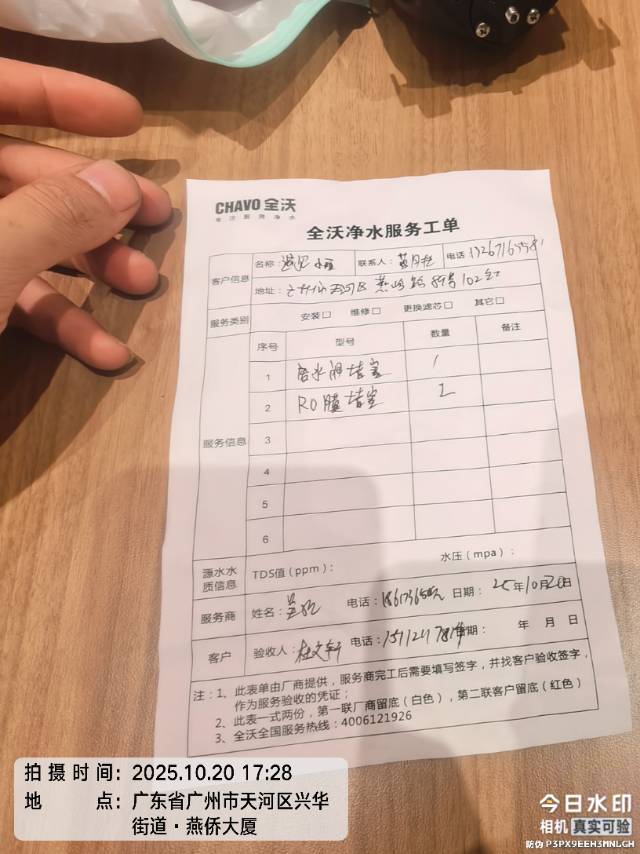 CHAVO 全沃
全沃净水服务工单
客户信息 名称： 联系人： 电话
地址：广州市天河区燕岭路89号102
服务类别 安装□ 维修□ 更换滤芯□ 其它□
服务信息 序号 型号 数量 备注
1 1
2 RO膜 2
3
4
5
6
源水水质信息 TDS值（ppm）： 水压（mpa）：
服务商 姓名： 电话： 日期：25年10月20日
客户 验收人：杜文轩 电话： 日期： 年 月 日
注：1、此表单由厂商提供，服务商完工后需要填写签字，并找客户验收签字，
作为服务验收的凭证；
2、此表一式两份，第一联厂商留底（白色），第二联客户留底（红色）
3、全沃全国服务热线：4006121926
拍摄时间：2025.10.20 17:28
地 点：广东省广州市天河区兴华
街道·燕侨大厦
今日水印
相机 真实可验
防伪 P3PX9EEH3MNLGH